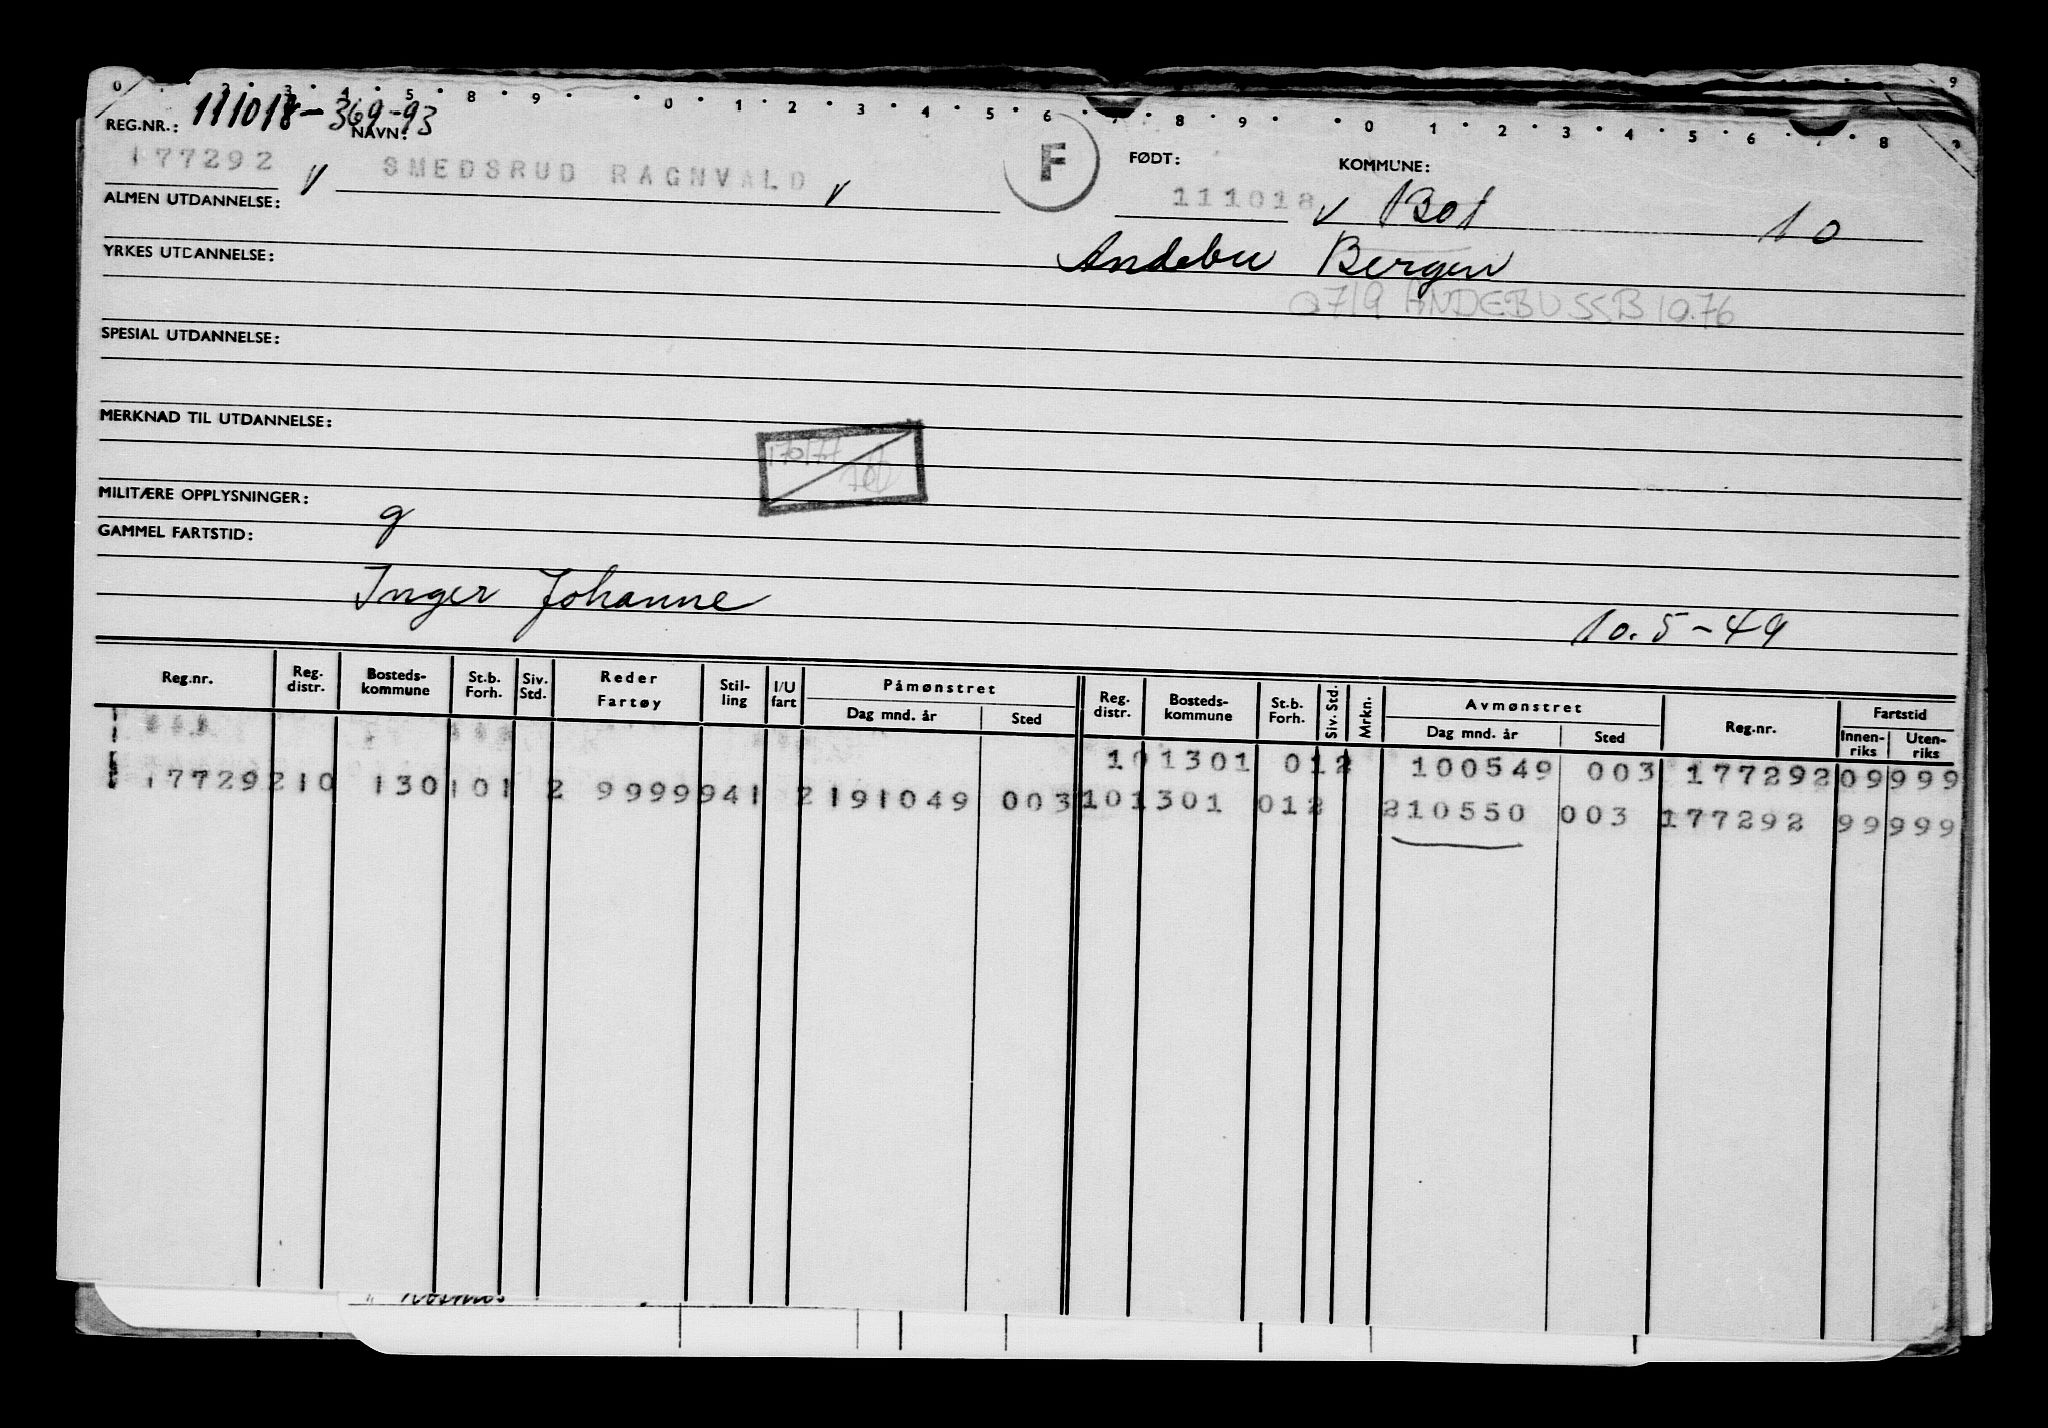 0 2 3 4 5 8 9 0 1 2 3 4 5 6 7 8 9 0 1 2 3 4 5 6 7 8 9
REG.NR.: 111018-369-93 NAVN: FØDT: KOMMUNE:
177292 v SMEDSRUD RAGNVALD v F 111018 v 1301 10
ALMEN UTDANNELSE:
Andebu Bergen
YRKES UTDANNELSE:
0719 ANDEBU SSB 10.76
SPESIAL UTDANNELSE:
MERKNAD TIL UTDANNELSE:
170177
MILITÆRE OPPLYSNINGER:
g
GAMMEL FARTSTID:
Inger Johanne 10.5-49
Reg.nr. Reg. distr. Bosteds-kommune St.b. Forh. Siv. Std. Reder Fartøy Stil-ling I/U fart Påmønstret Dag mnd. år Sted Reg. distr. Bosteds-kommune St.b. Forh. Siv. Std. Mrkn. Avmønstret Dag mnd. år Sted Reg.nr. Fartstid Innen-riks Uten-riks
10 1301 01 2 100549 003 177292 09 999
177292 10 1301 01 2 9999 941 2 191049 003 10 1301 01 2 210550 003 177292 99 999